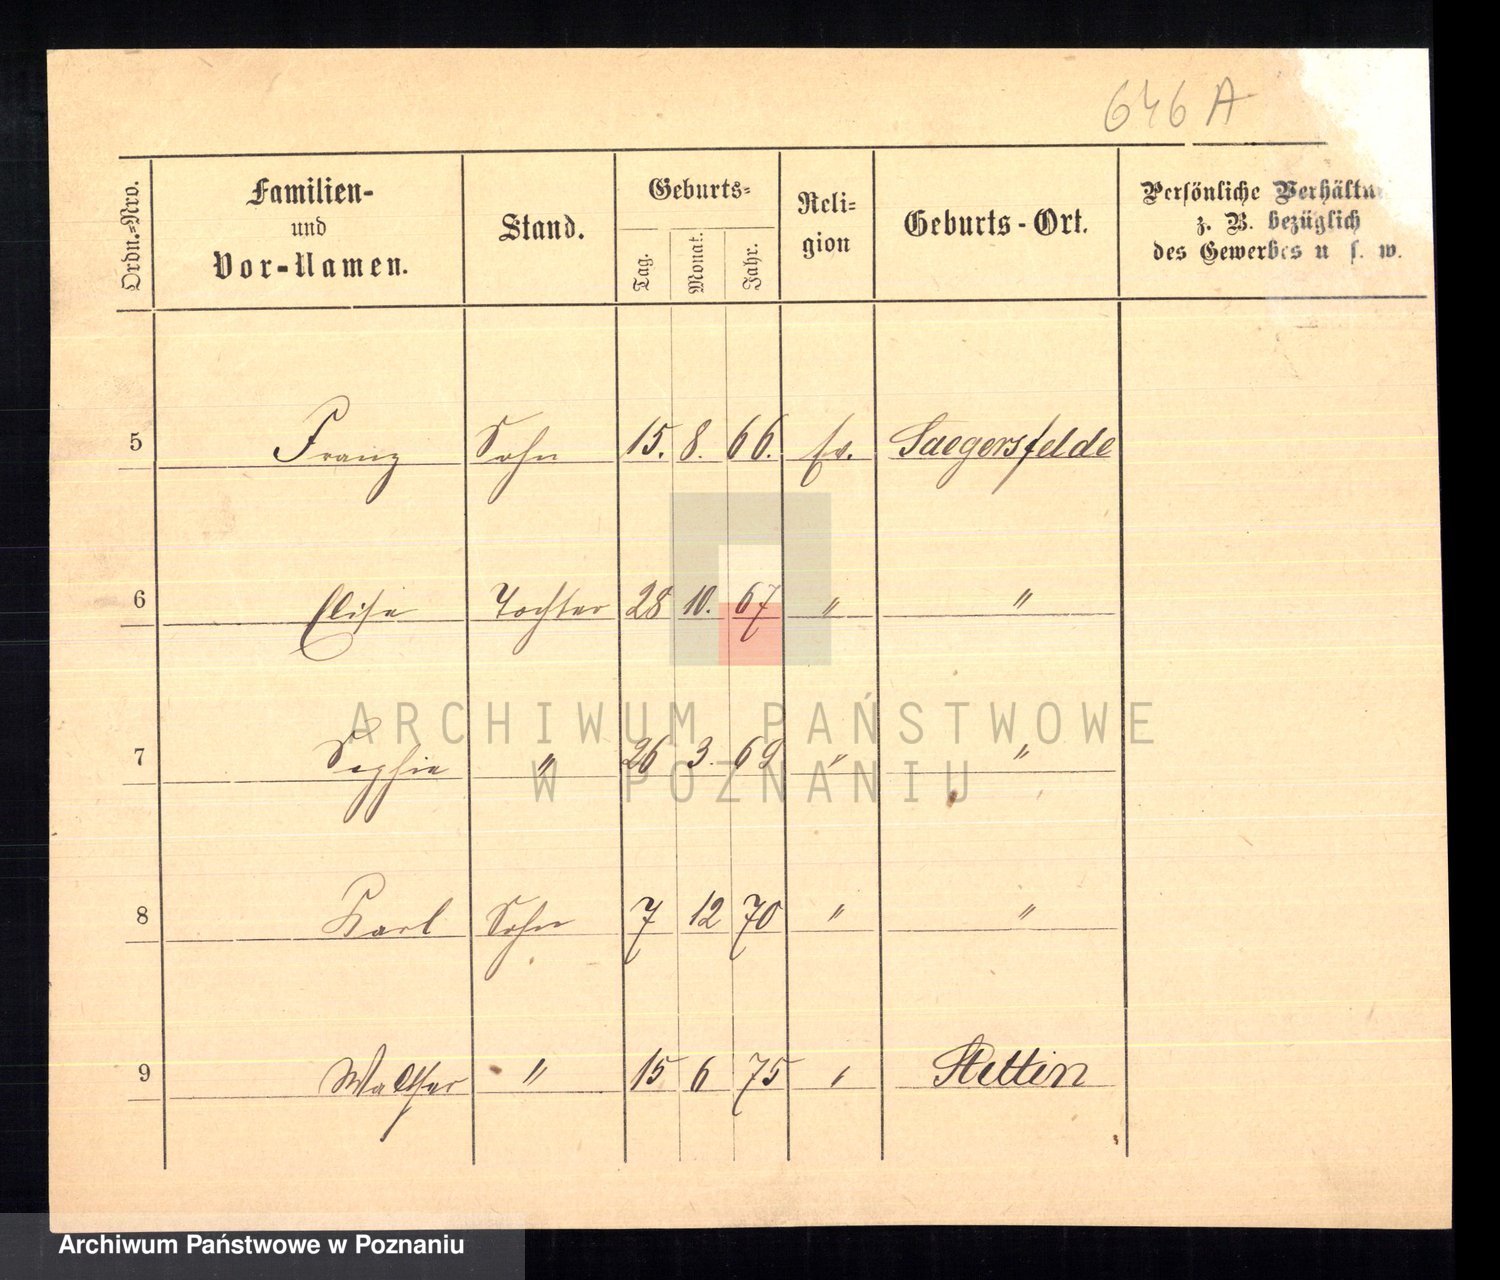 646 A
Ordn.-Nro. Familien- und Vor-Namen. Stand. Geburts- Tag. Monat. Jahr. Religion Geburts-Ort. Persönliche z. B. bezüglich des Gewerbes u s. w.
5 Franz Sohn 15. 8. 66. Ev. Saegersfelde
6 Elise Tochter 28 10. 67 " "
7 Sophie " 26 3. 69 " "
8 Karl Sohn 7 12 70 " "
9 Walther " 15 6 75 " Stettin
ARCHIWUM PAŃSTWOWE
W POZNANIU
Archiwum Państwowe w Poznaniu